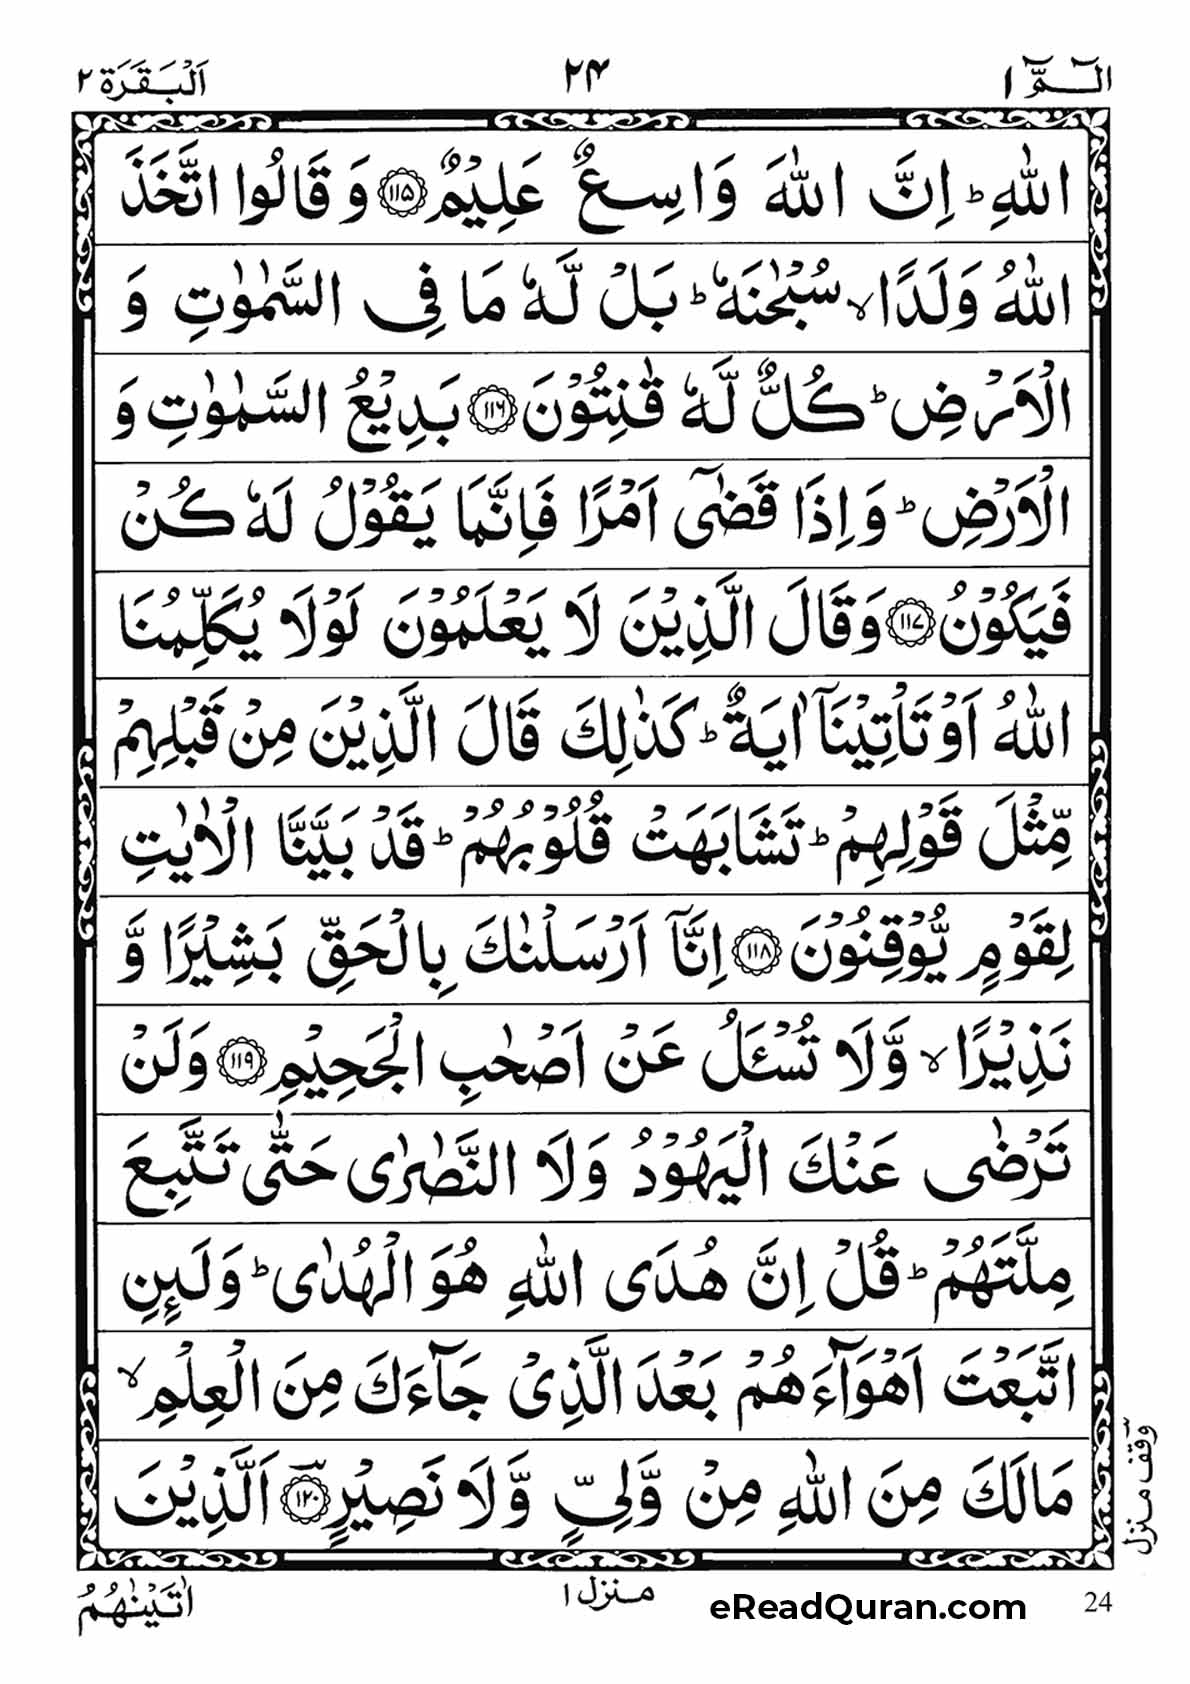 الٓـمّٓ ١ ٢٤ اَلْبَقَرَة ٢
اللّٰهِ ؕ اِنَّ اللّٰهَ وَاسِعٌ عَلِيْمٌ ۝۱۱۵ وَ قَالُوا اتَّخَذَ
اللّٰهُ وَلَدًا ۙ سُبْحٰنَهٗ ؕ بَلْ لَّهٗ مَا فِى السَّمٰوٰتِ وَ
الْاَرْضِ ؕ كُلٌّ لَّهٗ قٰنِتُوْنَ ۝۱۱۶ بَدِيْعُ السَّمٰوٰتِ وَ
الْاَرْضِ ؕ وَ اِذَا قَضٰٓى اَمْرًا فَاِنَّمَا يَقُوْلُ لَهٗ كُنْ
فَيَكُوْنُ ۝۱۱۷ وَقَالَ الَّذِيْنَ لَا يَعْلَمُوْنَ لَوْلَا يُكَلِّمُنَا
اللّٰهُ اَوْ تَاْتِيْنَآ اٰيَةٌ ؕ كَذٰلِكَ قَالَ الَّذِيْنَ مِنْ قَبْلِهِمْ
مِّثْلَ قَوْلِهِمْ ؕ تَشَابَهَتْ قُلُوْبُهُمْ ؕ قَدْ بَيَّنَّا الْاٰيٰتِ
لِقَوْمٍ يُّوْقِنُوْنَ ۝۱۱۸ اِنَّآ اَرْسَلْنٰكَ بِالْحَقِّ بَشِيْرًا وَّ
نَذِيْرًا ۙ وَّلَا تُسْـَٔلُ عَنْ اَصْحٰبِ الْجَحِيْمِ ۝۱۱۹ وَلَنْ
تَرْضٰى عَنْكَ الْيَهُوْدُ وَلَا النَّصٰرٰى حَتّٰى تَتَّبِعَ
مِلَّتَهُمْ ؕ قُلْ اِنَّ هُدَى اللّٰهِ هُوَ الْهُدٰى ؕ وَلَئِنِ
اتَّبَعْتَ اَهْوَآءَهُمْ بَعْدَ الَّذِىْ جَآءَكَ مِنَ الْعِلْمِ ۙ
مَا لَكَ مِنَ اللّٰهِ مِنْ وَّلِىٍّ وَّلَا نَصِيْرٍ ۝۱۲۰ اَلَّذِيْنَ
وقف منزل
اٰتَيْنٰهُمُ منزل ١ eReadQuran.com 24